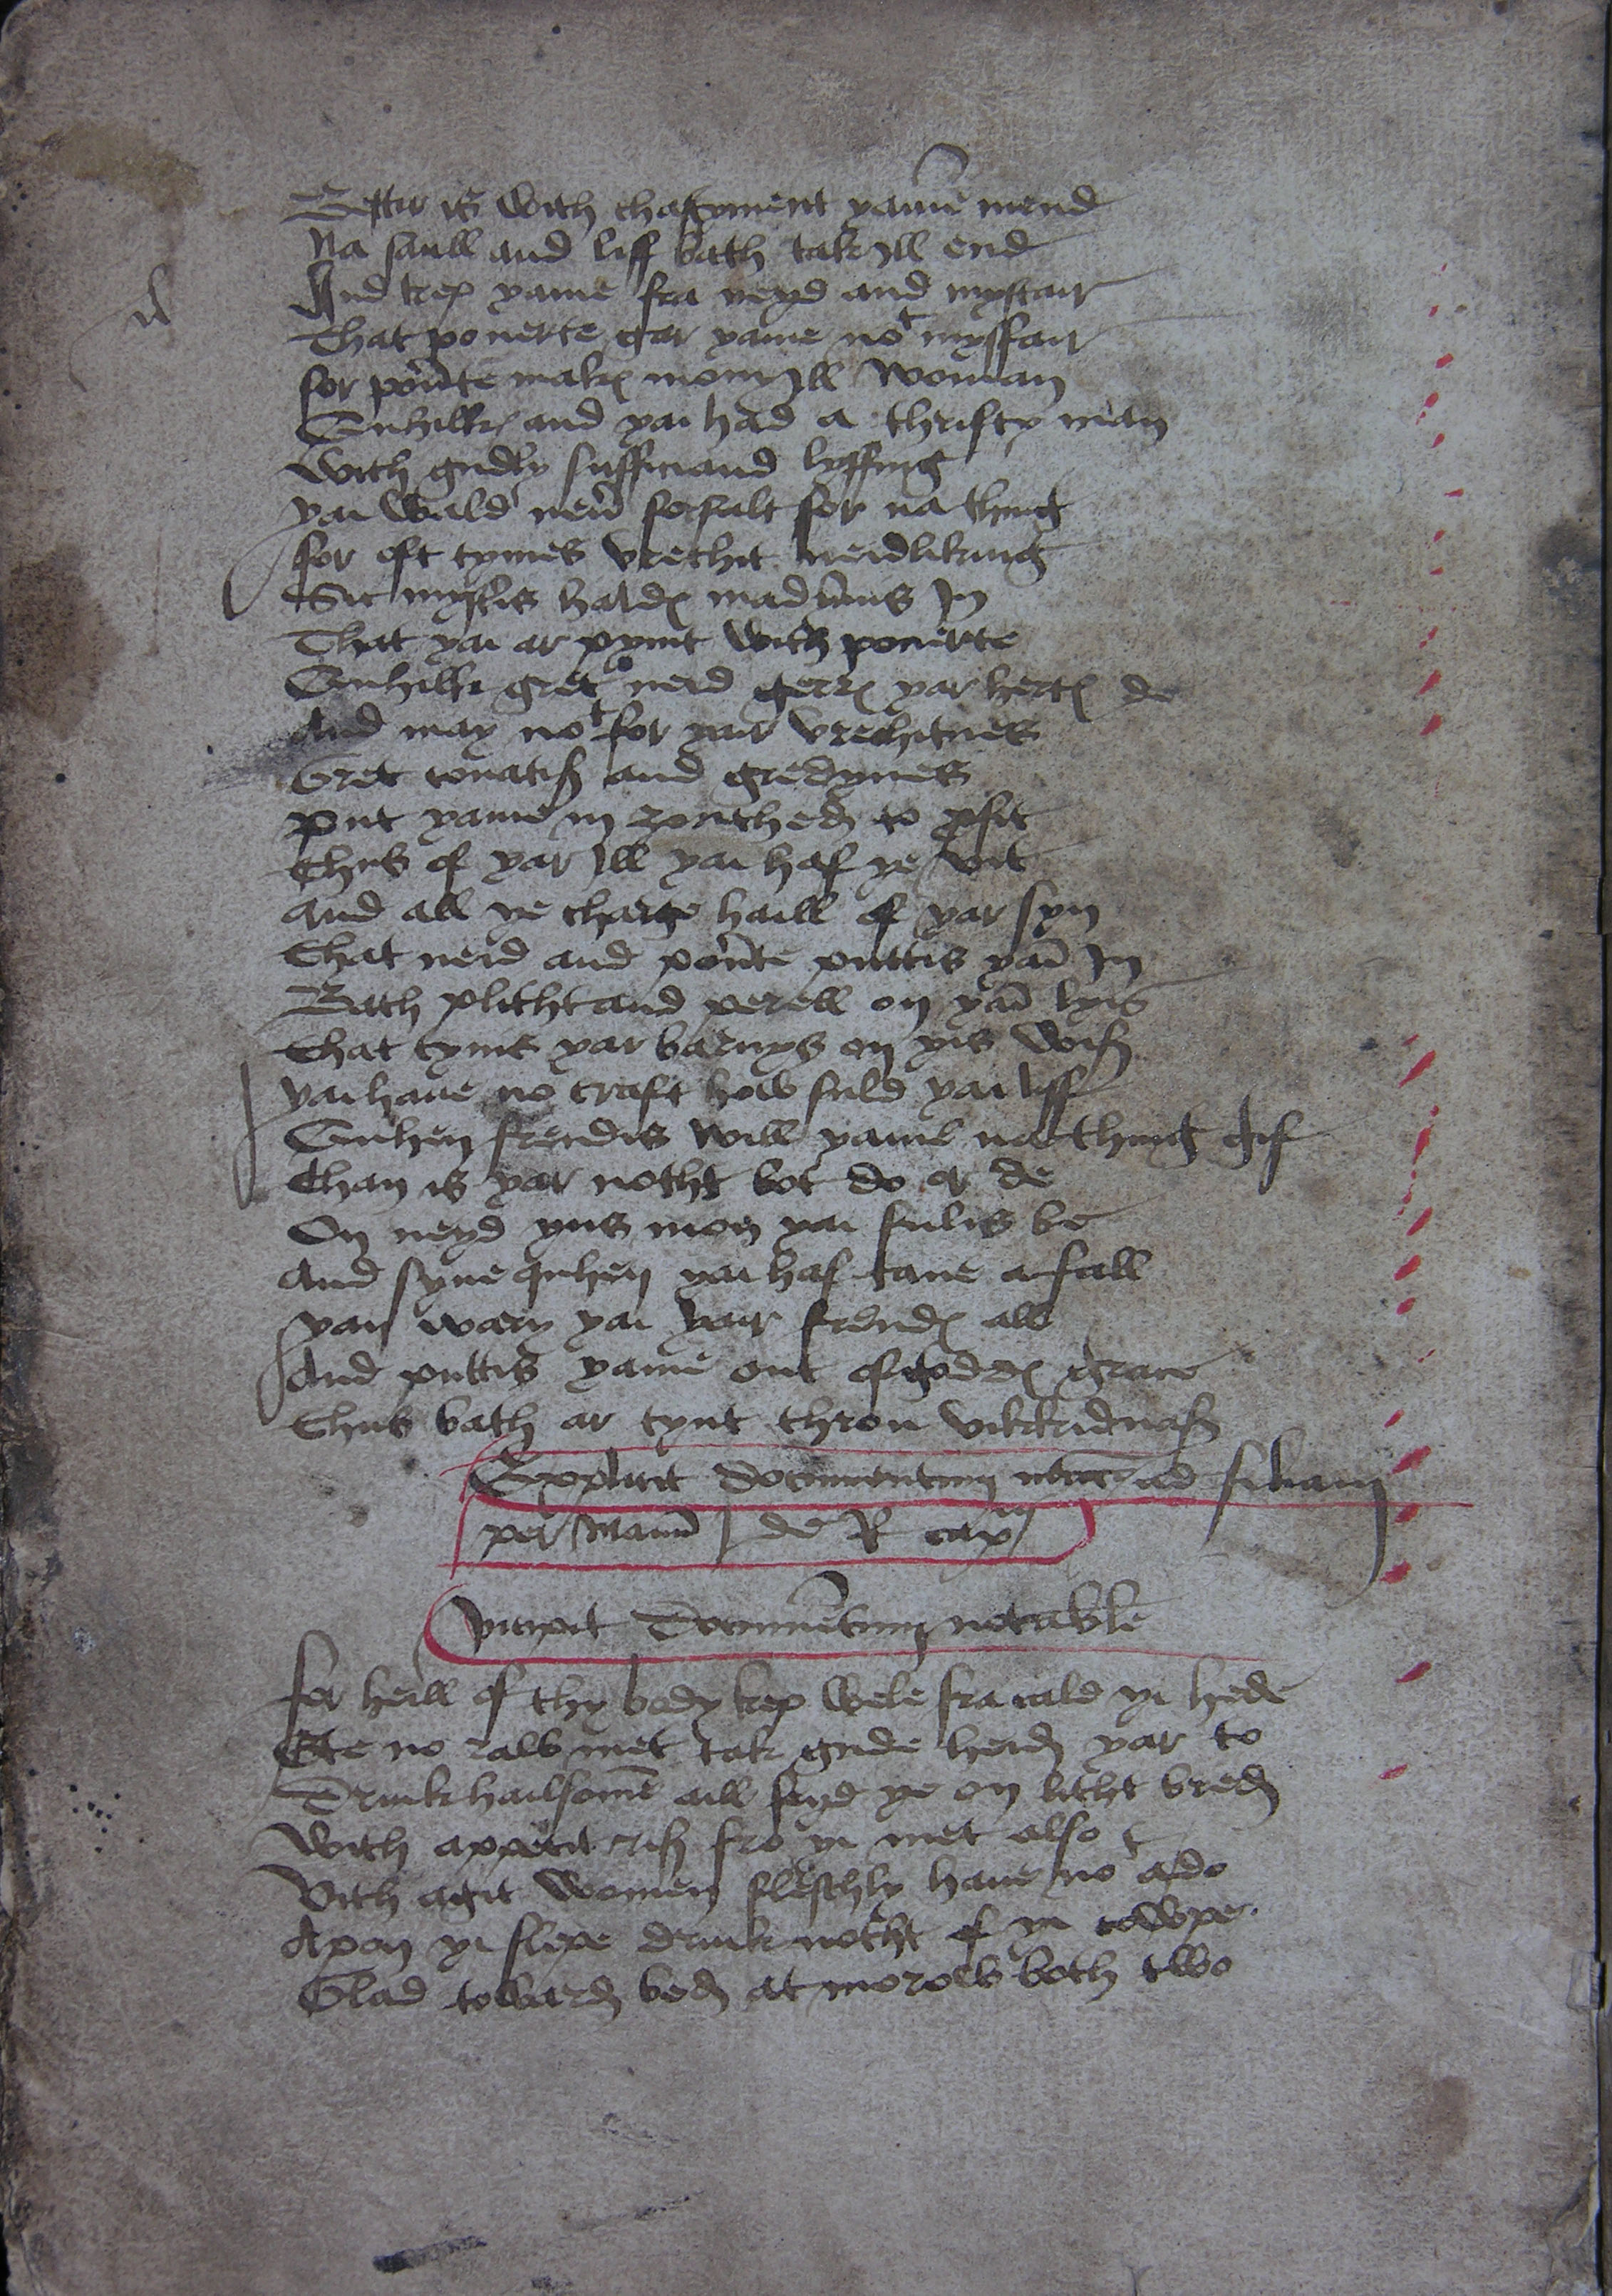 Bettir is with chastyment yame mend
Na saull and liff bath tak Ill end
And kep yame fra neyd and mystair
That pouerte gar yame not myssfair
for pouerte makis mony Ill woman
Quhilkis and yai had a thrifty man
With gudly sufficiand lyffing
yai wald neuer forfalt for na thing
for oft tymes vrethit neidliking
Sic mystis haldis madinnis In
That yai ar pynit with pouerte
Quhilk gret neid gerris yar hertis de
And may not for yair vrechitnes
Gret couatiß and gredynes
Put yame in zoutheid to profit
Thus of yar Ill yai haf ye vit
And all ye charge haill of yar syn
That neid and pouerte puttis yam In
Bath plitht and perell on yam lyis
That tyme yar barnys on yis wiß
yai haue no craft how suld yai liff
Quhen freindis will yame na thing gif
Than is yar notht bot do or de
On neyd yus mon yai fulis be
And syne quhen yai haf tane a fall
yan wary yai yair freindis all
And puttis yame out of goddis grace
Thus bath ar tynt throu vikkidnaß
Explicit documentum ad filiam
per Manum de R cap
Incipit Documentum notabile
for heill of thy body kep wele fra cald yi hede
Ete no raw met tak gude heid yar to
Drink hailsome aill feyd ye on litht breid
With appetit riß fro yi met also
Vith agit women fleschly haue not ado
Apon yi slepe drink notht of ye cowpe
Glad towards bed at morow both two